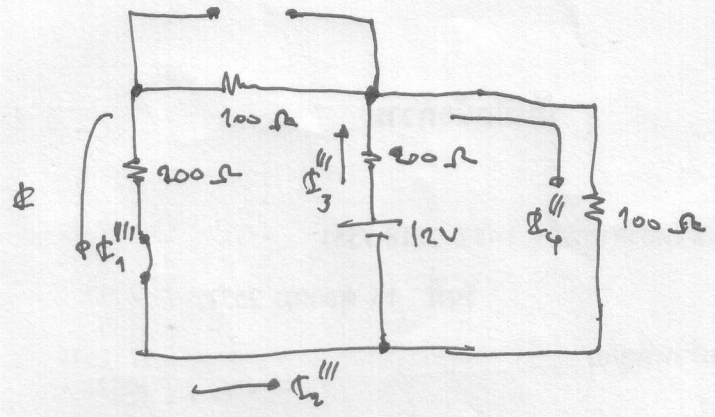 100 Ω
200 Ω
I₃'''
200 Ω
I₄'''
100 Ω
I₁'''
12V
I₂'''